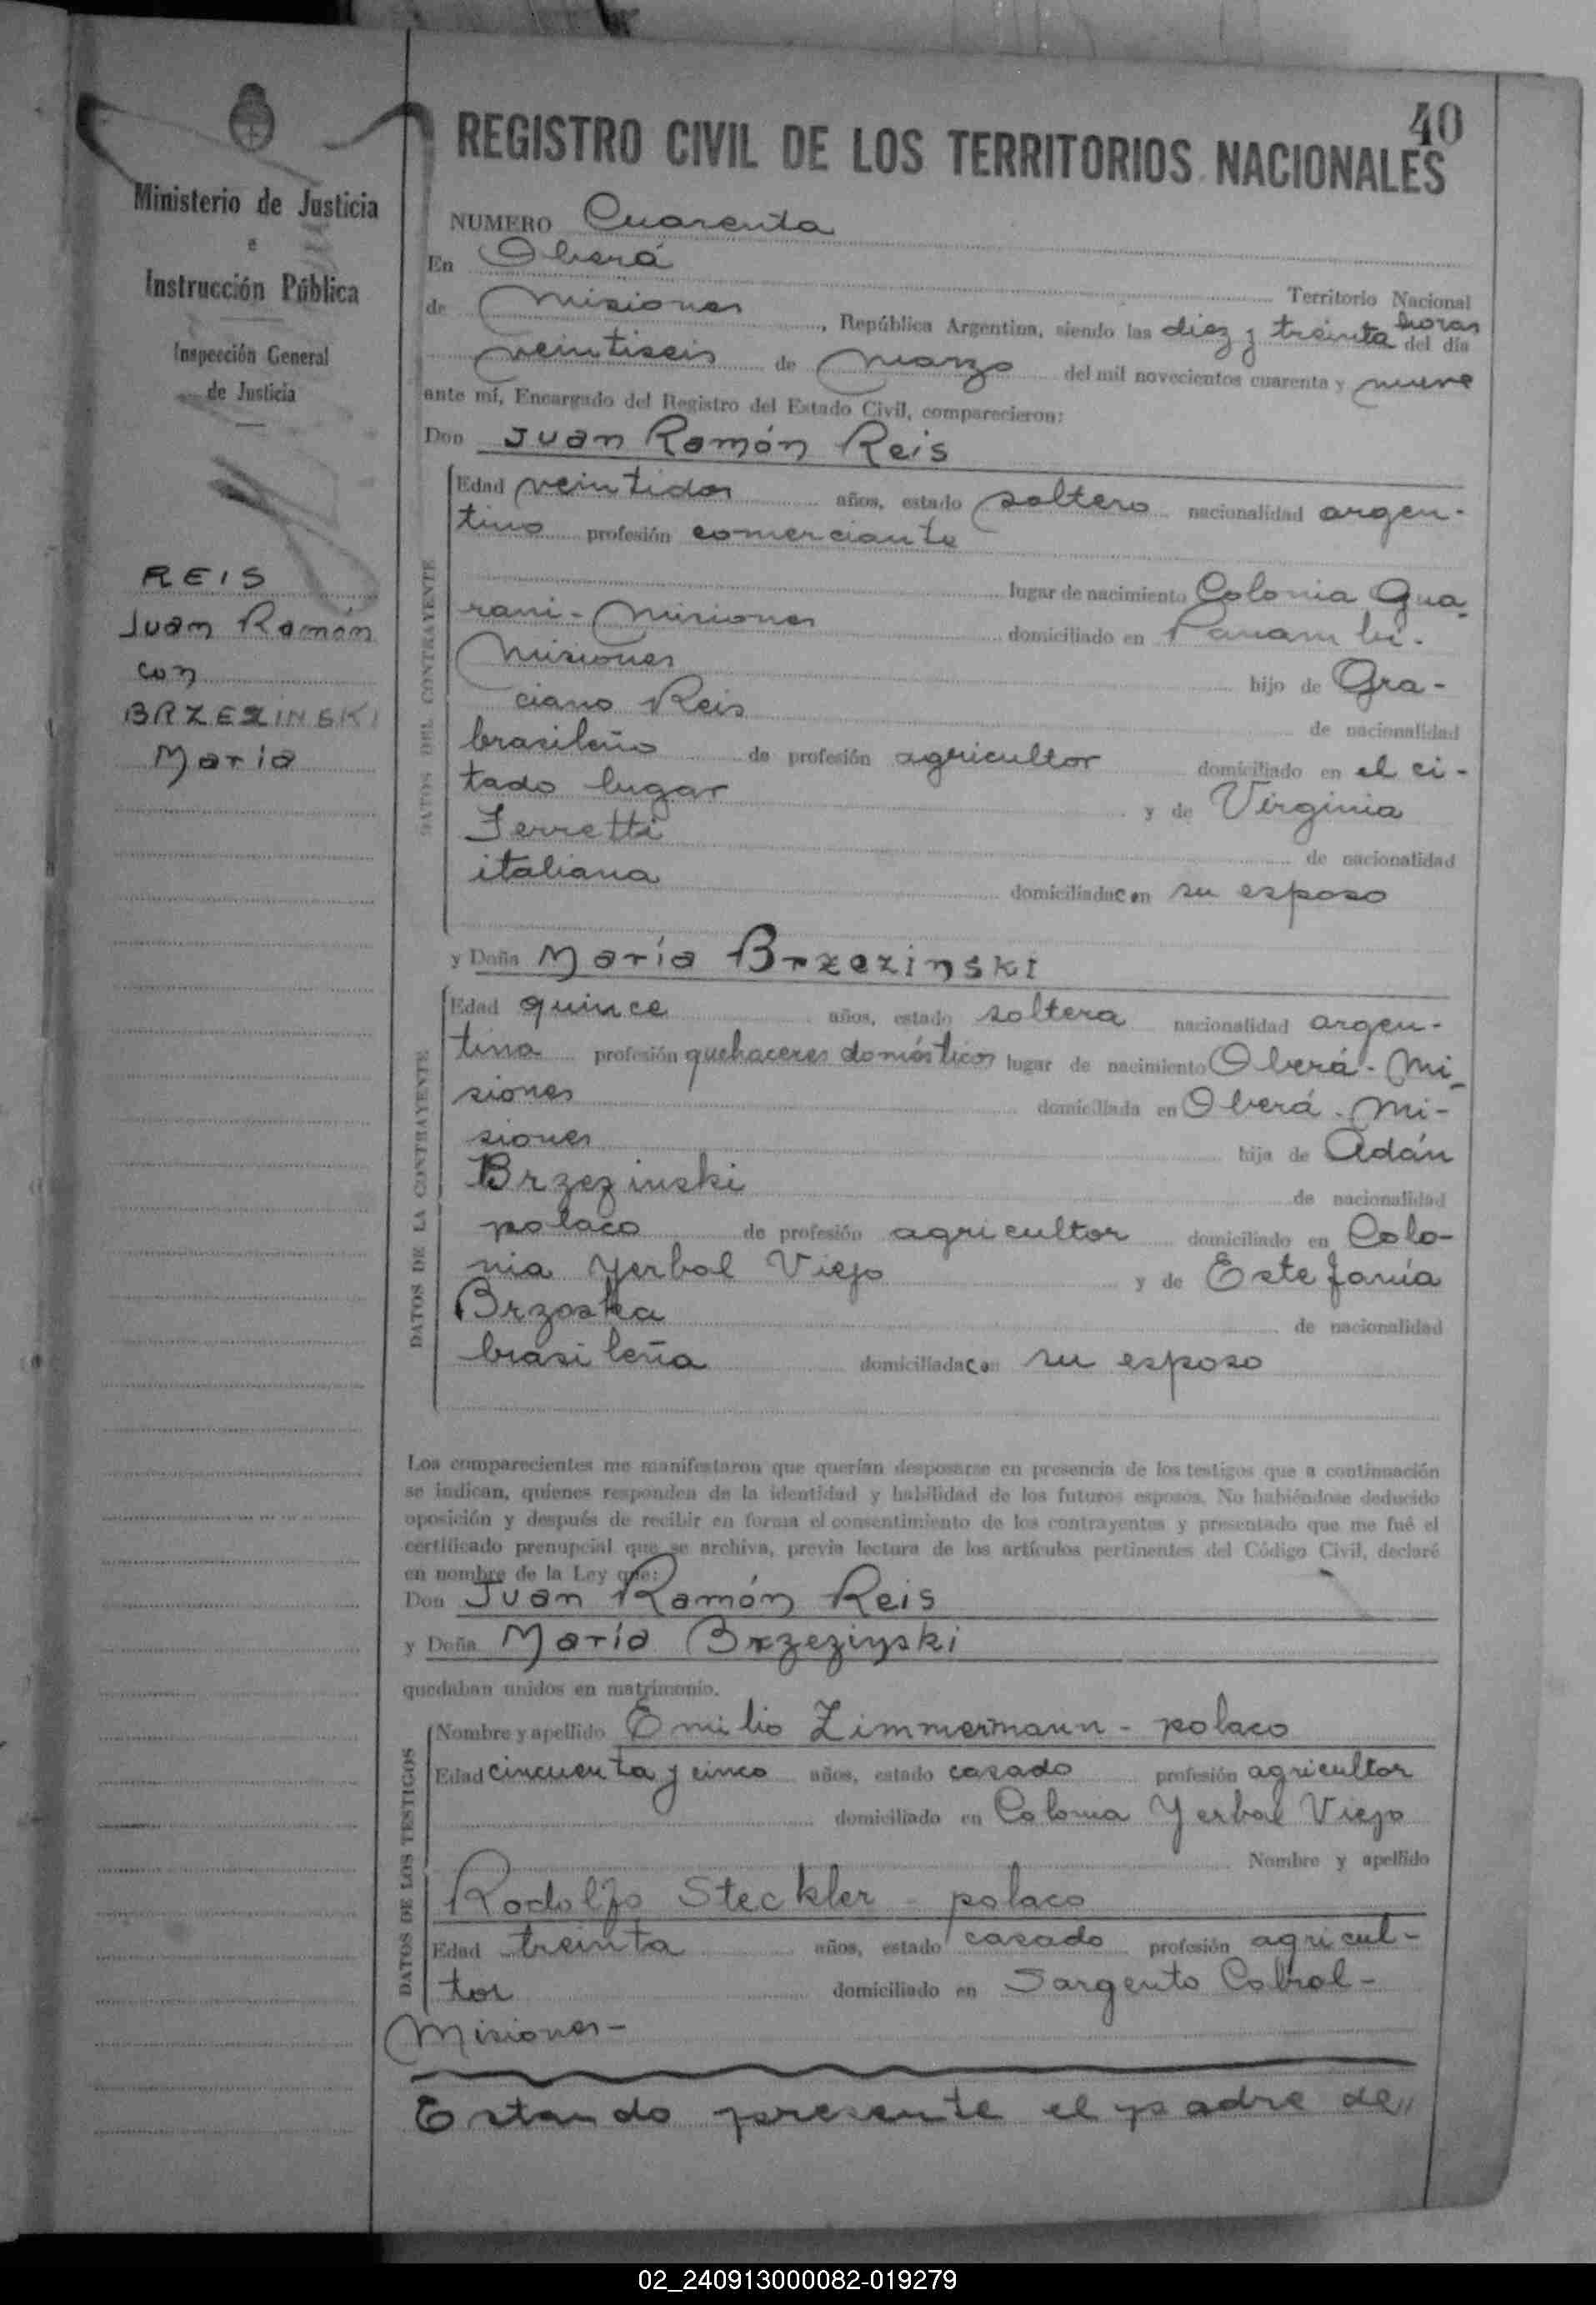 40
Ministerio de Justicia
e
Instrucción Pública
Inspección General
de Justicia
REIS
Juan Ramón
con
BRZEZINSKI
María
REGISTRO CIVIL DE LOS TERRITORIOS NACIONALES
NUMERO Cuarenta
En Oberá
Territorio Nacional
de Misiones, República Argentina, siendo las diez y treinta horas del día
veintiseis de Marzo del mil novecientos cuarenta y nueve
ante mí, Encargado del Registro del Estado Civil, comparecieron:
Don Juan Ramón Reis
DATOS DEL CONTRAYENTE
Edad veintidos años, estado soltero nacionalidad argen-
tino profesión comerciante
lugar de nacimiento Colonia Gua-
rani - Misiones domiciliado en Panambi -
Misiones hijo de Gra-
ciano Reis de nacionalidad
brasileño de profesión agricultor domiciliado en el ci-
tado lugar y de Virginia
Ferretti de nacionalidad
italiana domiciliada con su esposo
y Doña María Brzezinski
DATOS DE LA CONTRAYENTE
Edad quince años, estado soltera nacionalidad argen-
tina profesión quehaceres domésticos lugar de nacimiento Oberá - Mi-
siones domiciliada en Oberá - Mi-
siones hija de Adán
Brzezinski de nacionalidad
polaco de profesión agricultor domiciliado en Colo-
nia Yerbal Viejo y de Estefanía
Brzoska de nacionalidad
brasileña domiciliada con su esposo
Los comparecientes me manifestaron que querían desposarse en presencia de los testigos que a continuación
se indican, quienes responden de la identidad y habilidad de los futuros esposos. No habiéndose deducido
oposición y después de recibir en forma el consentimiento de los contrayentes y presentado que me fué el
certificado prenupcial que se archiva, previa lectura de los artículos pertinentes del Código Civil, declaré
en nombre de la Ley que:
Don Juan Ramón Reis
y Doña María Brzezinski
quedaban unidos en matrimonio.
DATOS DE LOS TESTIGOS
Nombre y apellido Emilio Zimmermann - polaco
Edad cincuenta y cinco años, estado casado profesión agricultor
domiciliado en Colonia Yerbal Viejo
Nombre y apellido
Rodolfo Steckler - polaco
Edad treinta años, estado casado profesión agricul-
tor domiciliado en Sargento Cabral -
Misiones -
Estando presente el padre de//
02_240913000082-019279